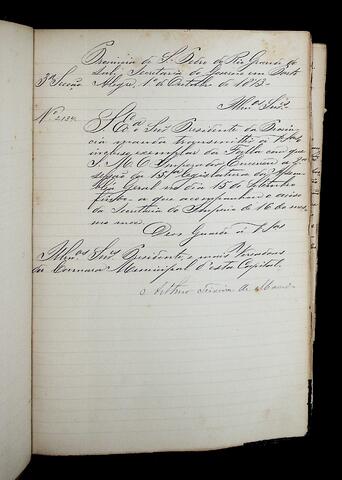 Provincia de S. Pedro do Rio Grande do
3ª Secção Sul, Secretaria do Governo em Porto
Alegre, 1º de Outubro de 1873.
Illmos Snrs
Nº 2134. S. Exª o Snr Presidente da Provin-
cia manda transmittir a VSas o
incluso exemplar da Falla com que
S. M. O Imperador Encerrou a 2ª
sessão da 15ª legislatura da Assem-
bléa Geral no dia 15 de Setembro
findo, a que acompanhou o aviso
da Secretaria do Imperio de 16 do mes-
mo mez.
Deos Guarde a VSas
Illmos Snrs Presidente, e mais Vereadores
da Camara Municipal d'esta Capital.
o Arthur Teixeira de